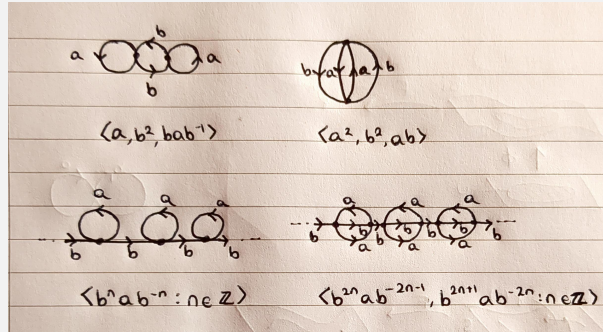 a b b a
b a a b
⟨a, b², bab⁻¹⟩
⟨a², b², ab⟩
a a a
b b b b
a a a
b b b b b b b
a a a
⟨bⁿab⁻ⁿ : n∈ℤ⟩
⟨b²ⁿab⁻²ⁿ⁻¹, b²ⁿ⁺¹ab⁻²ⁿ : n∈ℤ⟩